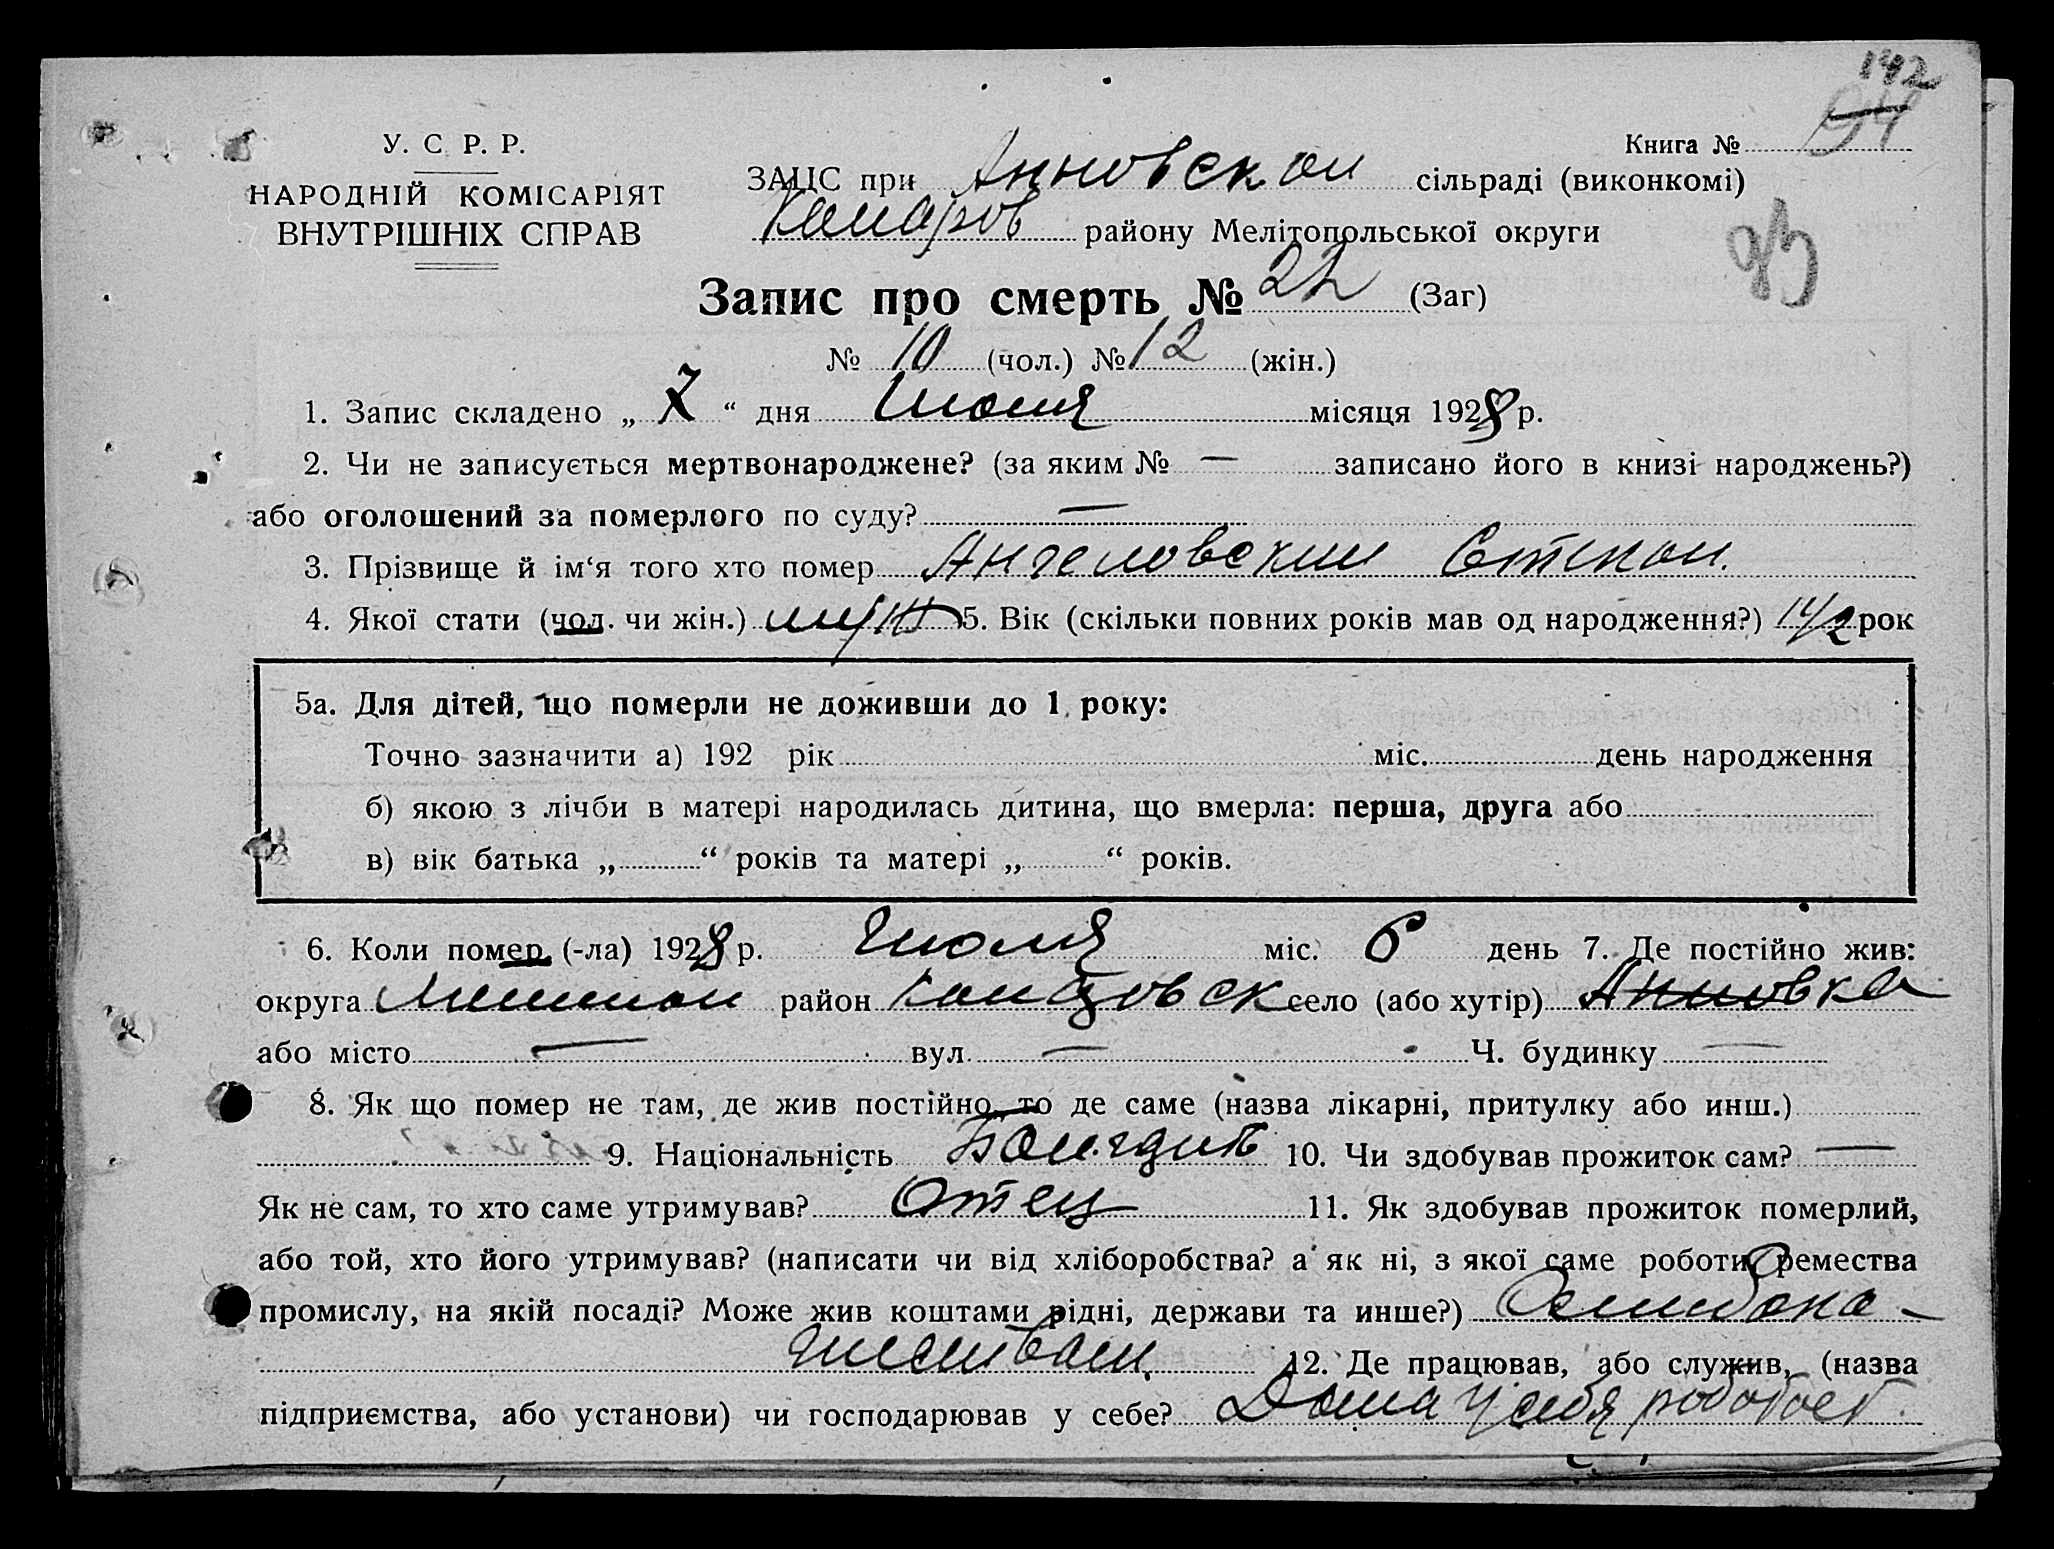 142
У. С. Р. Р.
Книга № 94
НАРОДНІЙ КОМІСАРІЯТ
ВНУТРІШНІХ СПРАВ
ЗАЦС при Анновской сільраді (виконкомі)
району Мелітопольської округи
93
Запис про смерть № 22 (Заг)
№ 10 (чол.) № 12 (жін.)
1. Запис складено „ 7 “ дня Июля місяця 1928 р.
2. Чи не записується мертвонароджене? (за яким № — записано його в книзі народжень?)
або оголошений за померлого по суду? —
3. Прізвище й ім‘я того хто помер Ангеловский Степан.
4. Якої стати (чол. чи жін.) муж 5. Вік (скільки повних років мав од народження?) 1 1/2 рок
5а. Для дітей, що померли не доживши до 1 року:
Точно зазначити а) 192 рік міс. день народження
б) якою з лічби в матері народилась дитина, що вмерла: перша, друга або
в) вік батька „ “ років та матері „ “ років.
6. Коли помер (-ла) 1928 р. Июля міс. 6 день 7. Де постійно жив:
округа район село (або хутір) Анновка
або місто — вул. — Ч. будинку —
8. Як що помер не там, де жив постійно, то де саме (назва лікарні, притулку або инш.) —
9. Національність 10. Чи здобував прожиток сам? —
Як не сам, то хто саме утримував? Отец 11. Як здобував прожиток померлий,
або той, хто його утримував? (написати чи від хліборобства? а як ні, з якої саме роботи, ремества
промислу, на якій посаді? Може жив коштами рідні, держави та инше?)
12. Де працював, або служив, (назва
підприємства, або установи) чи господарював у себе? Дома у себя работает